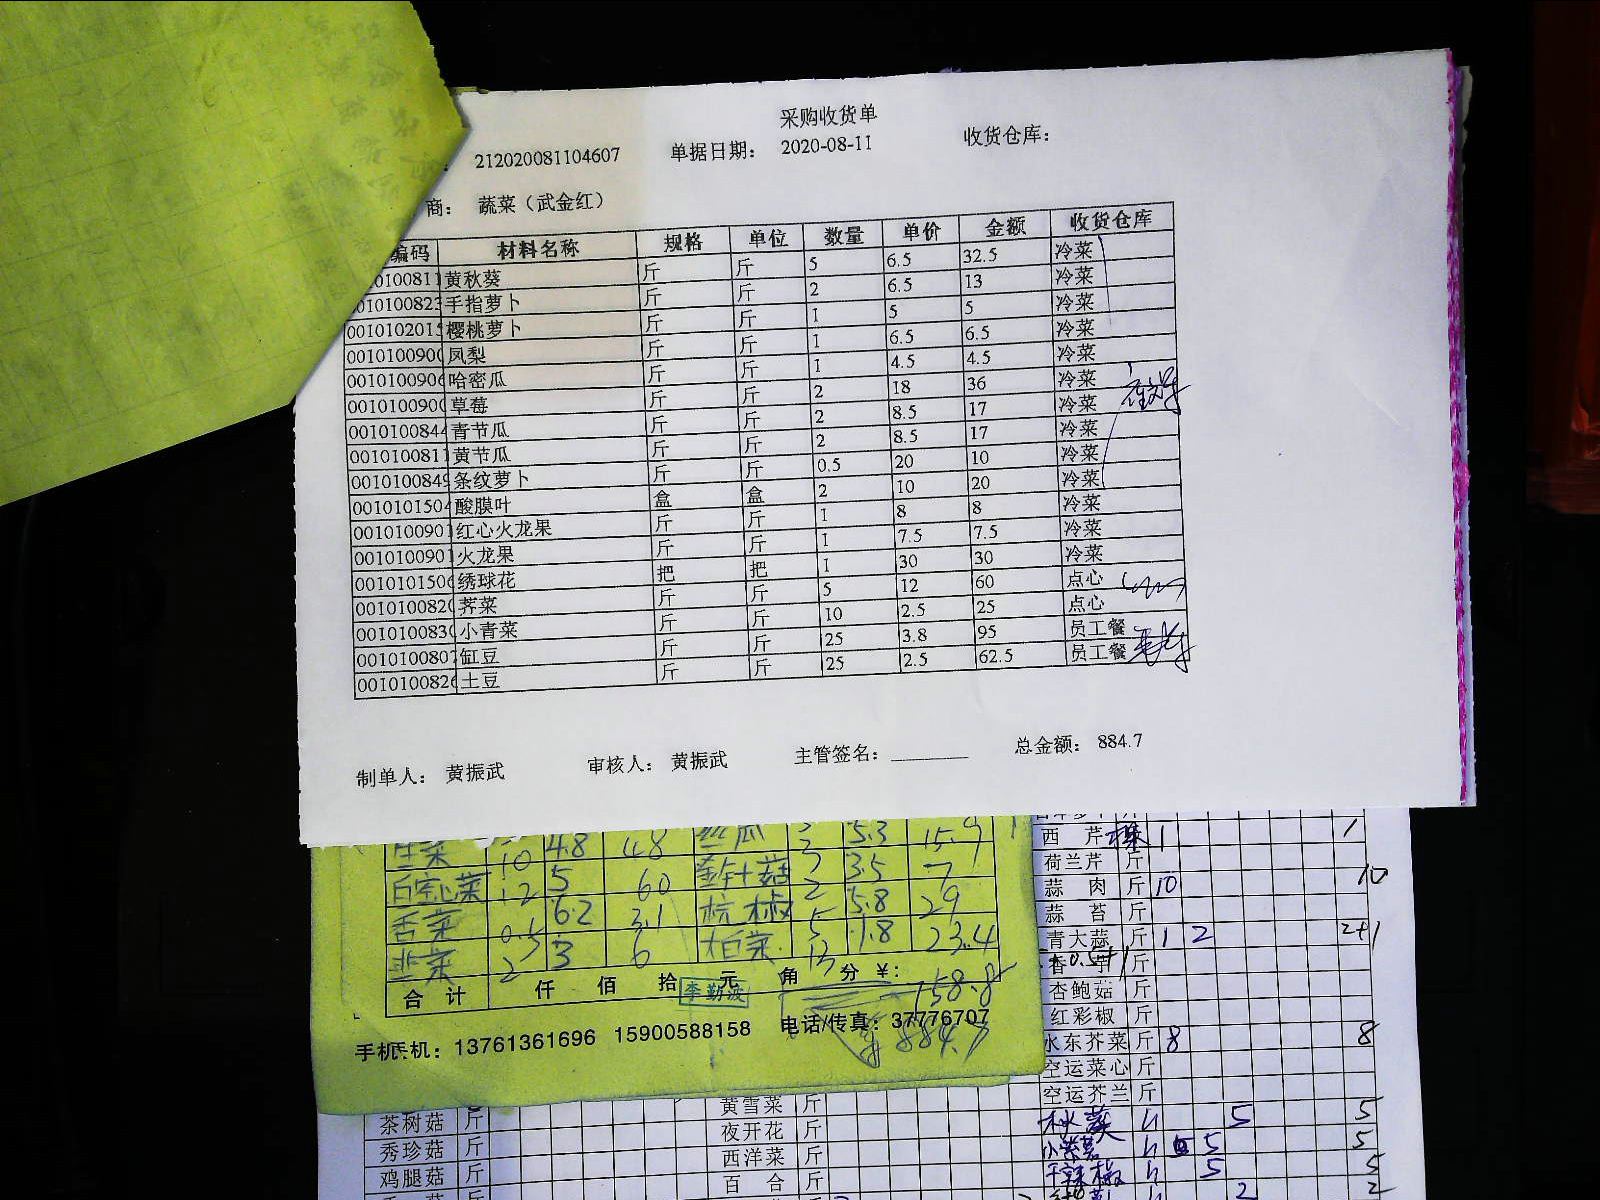 采购收货单
212020081104607 单据日期： 2020-08-11 收货仓库：
商： 蔬菜（武金红）
编码 材料名称 规格 单位 数量 单价 金额 收货仓库
0101008 黄秋葵 斤 斤 5 6.5 32.5 冷菜
010100823 手指萝卜 斤 斤 2 6.5 13 冷菜
001010201 樱桃萝卜 斤 斤 1 5 5 冷菜
0010100900 凤梨 斤 斤 1 6.5 6.5 冷菜
0010100906 哈密瓜 斤 斤 1 4.5 4.5 冷菜
0010100900 草莓 斤 斤 2 18 36 冷菜
0010100844 青节瓜 斤 斤 2 8.5 17 冷菜
001010081 黄节瓜 斤 斤 2 8.5 17 冷菜
0010100849 条纹萝卜 斤 斤 0.5 20 10 冷菜
0010101504 酸膜叶 盒 盒 2 10 20 冷菜
001010090 红心火龙果 斤 斤 1 8 8 冷菜
001010090 火龙果 斤 斤 1 7.5 7.5 冷菜
0010101506 绣球花 把 把 1 30 30 冷菜
0010100820 荠菜 斤 斤 5 12 60 点心
0010100830 小青菜 斤 斤 10 2.5 25 点心
0010100807 缸豆 斤 斤 25 3.8 95 员工餐
0010100826 土豆 斤 斤 25 2.5 62.5 员工餐
制单人： 黄振武 审核人： 黄振武 主管签名： 总金额： 884.7
生菜 10 4.8 48 丝瓜 3 5.3 15.9
白空心菜 12 5 60 金针菇 2 3.5 7
香菜 0.5 6.2 3.1 杭椒 5 5.8 29
韭菜 2 3 6 大白菜 13 1.8 23.4
合 计 仟 佰 拾 元 角 分 ¥:
李勤波
158.8
884.7
手机 机：13761361696 15900588158 电话/传真：37776707
西 芹 棵 1 1
荷兰芹 斤
蒜 肉 斤 10 10
蒜 苔 斤
青大蒜 斤 1 2 2+1
香 芋 斤
杏鲍菇 斤
红彩椒 斤
水东芥菜 斤 8 8
空运菜心 斤
空运芥兰 斤
秋葵 5 5
5 5
干辣椒 5 5
2 2
茶树菇 斤
秀珍菇 斤
鸡腿菇 斤
黄雪菜 斤
夜开花 斤
西洋菜 斤
百 合 斤